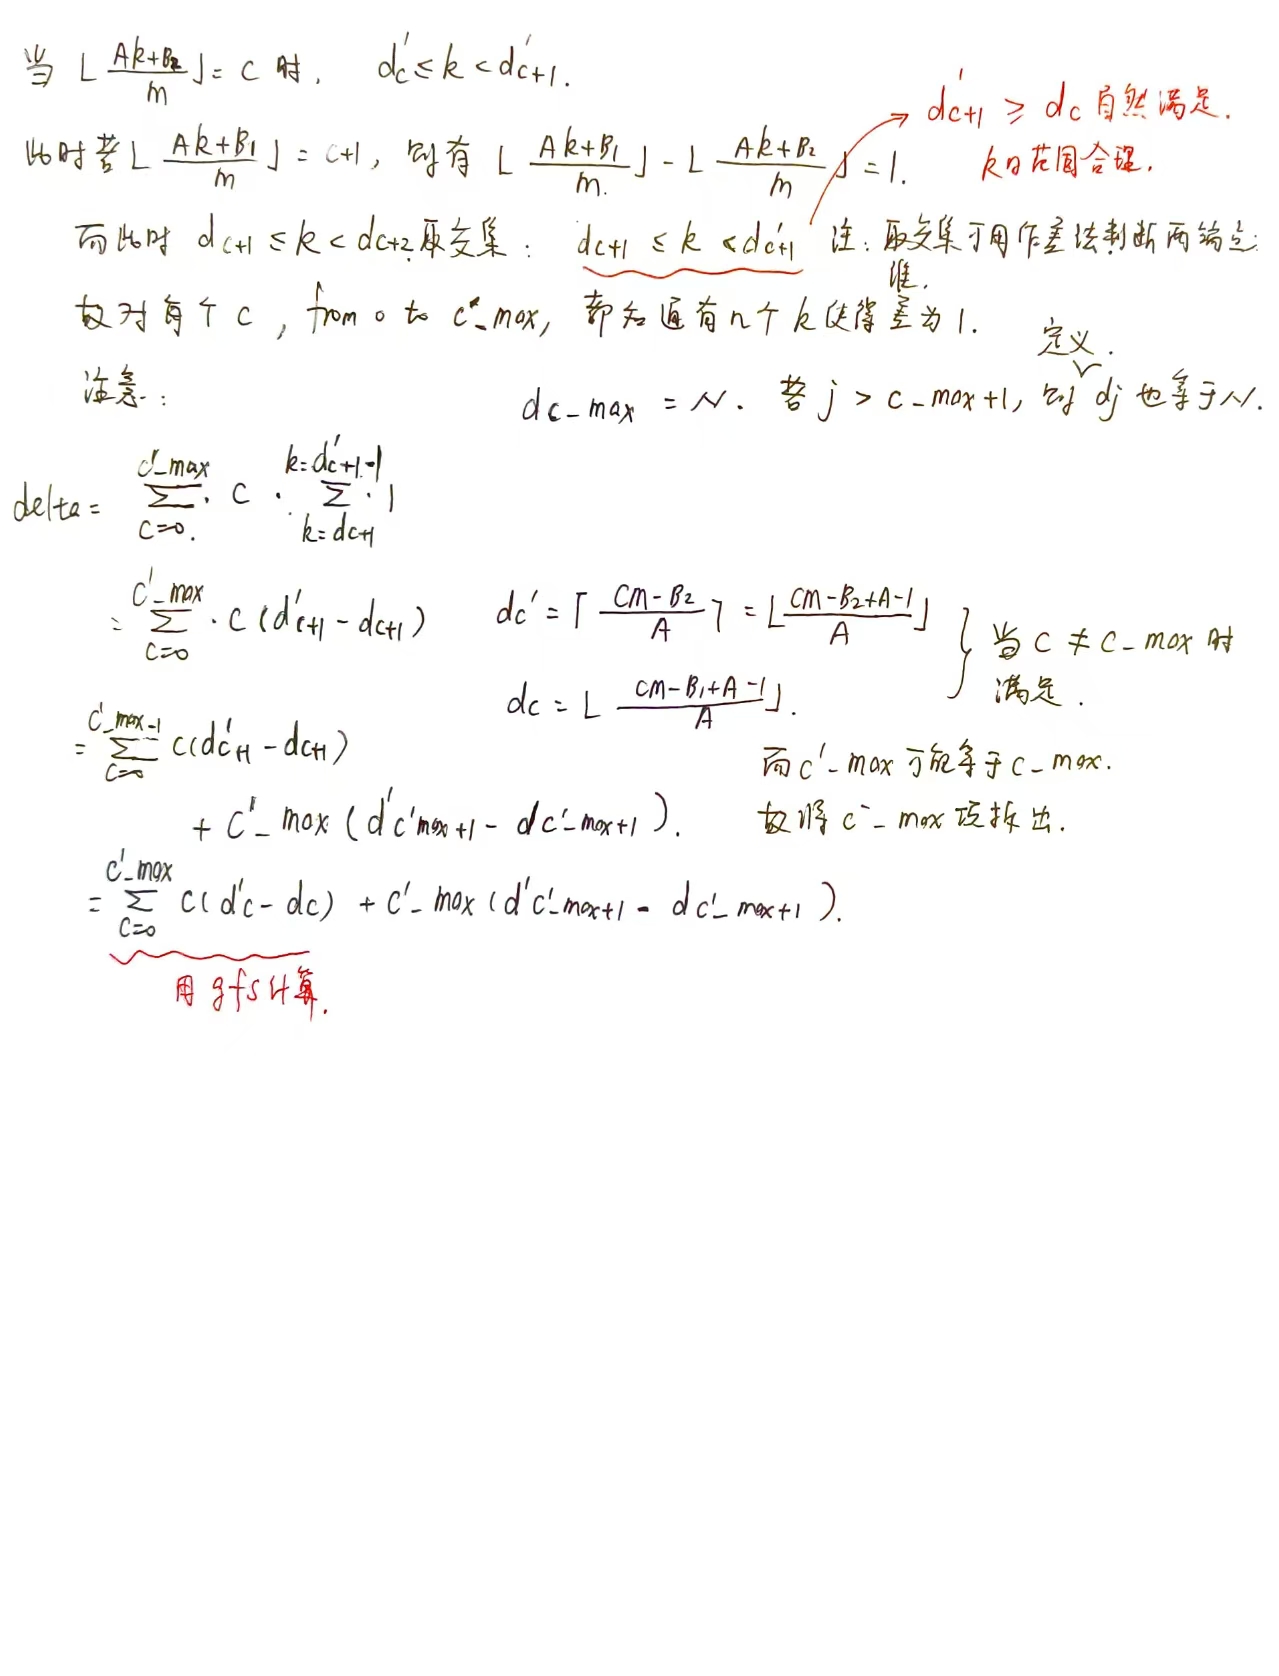 当 ⌊(Ak+B₂)/m⌋ = c 时, d'c ≤ k < d'c+1.
d'c+1 ≥ dc 自然满足.
k的范围合理.
此时若 ⌊(Ak+B₁)/m⌋ = c+1, 则有 ⌊(Ak+B₁)/m.⌋ - ⌊(Ak+B₂)/m⌋ = 1.
而此时 dc+1 ≤ k < dc+2. 取交集: dc+1 ≤ k < d'c+1 注: 取交集可用作差法判断两端点
谁.
故对每个 c, from 0 to c'_max, 都知道有n个k使得差为1.
定义.
注意: dc_max = N. 若 j > c_max+1, 则 dj 也等于N.
delta = Σ(c=0, c'_max) · c · Σ(k=dc+1, k=d'c+1-1) · 1
= Σ(c=0, c'_max) · c (d'c+1 - dc+1)
dc' = ⌈(cm-B₂)/A⌉ = ⌊(cm-B₂+A-1)/A⌋
dc = ⌊(cm-B₁+A-1)/A⌋.
当 c ≠ c_max 时
满足.
= Σ(c=0, c'_max-1) c(d'c+1 - dc+1)
+ c'_max (d'c'max+1 - dc'_max+1).
而 c'_max 可能等于 c_max.
故将 c'_max 项拆出.
= Σ(c=0, c'_max) c(d'c - dc) + c'_max (d'c'_max+1 - dc'_max+1).
用 gfs 计算.